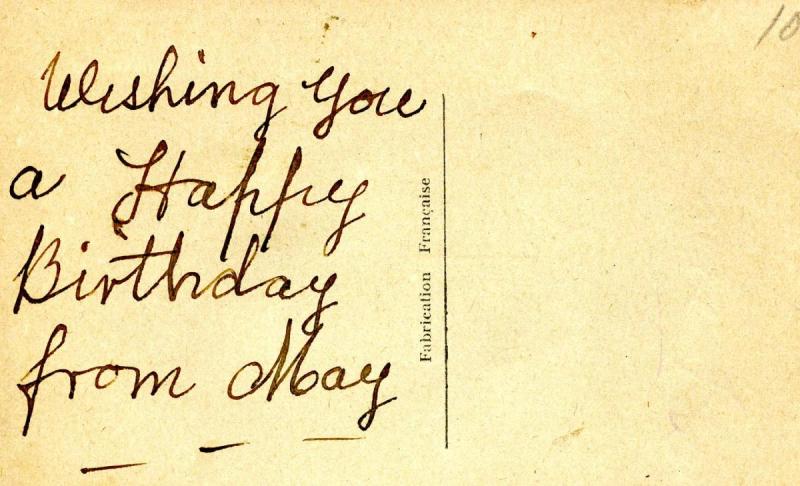 Wishing You
a Happy
Birthday
from May
Fabrication Française
10